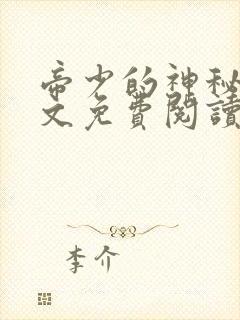 帝少的神秘
文免費閱讀
李介